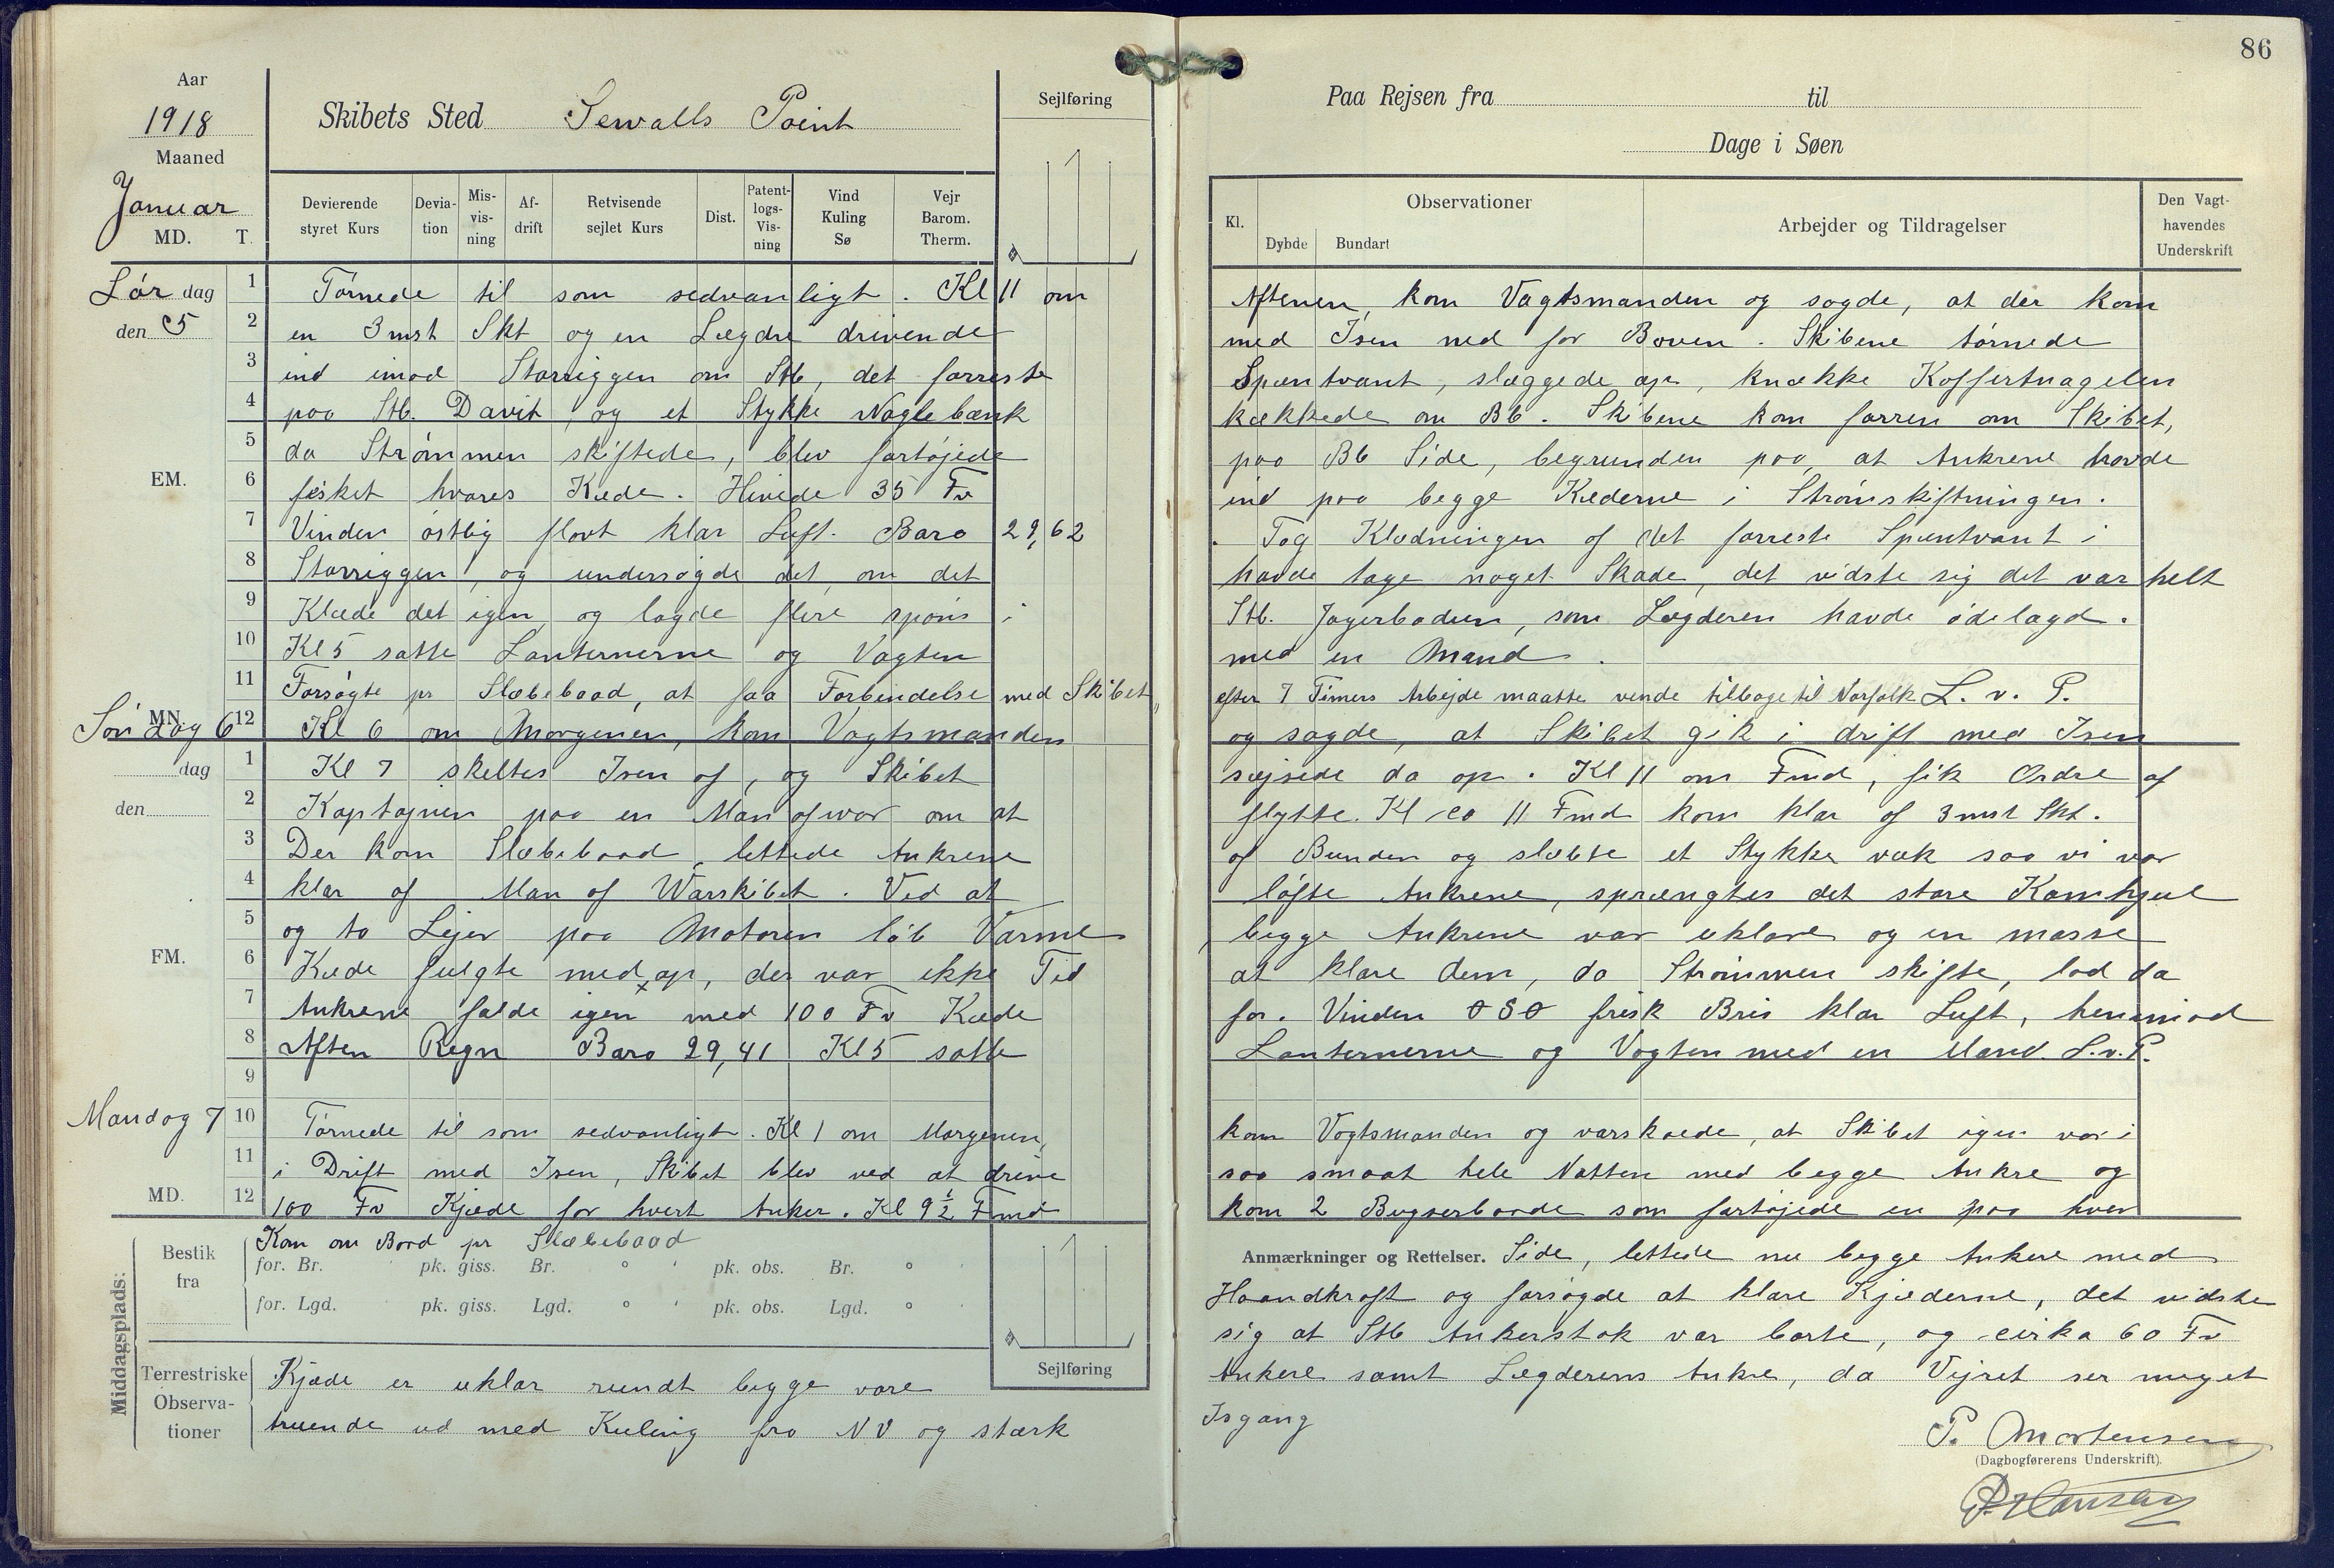 86
Aar
1918
Maaned
Januar
MD. T.
Skibets Sted Sewalls Point
Sejlføring
Paa Rejsen fra til
Dage i Søen
Devierende styret Kurs
Deviation
Misvisning
Afdrift
Retvisende sejlet Kurs
Dist.
Patentlogs-Visning
Vind Kuling Sø
Vejr Barom. Therm.
Kl.
Observationer
Dybde Bundart
Arbejder og Tildragelser
Den Vagthavendes Underskrift
Lör dag den 5
1 Törnede til som sedvanligt. Kl 11 om Aftenen, kom Vagtsmanden og sagde, at der kom
2 en 3 mst Skt og en Lægdre drivende med Isen ned for Boven. Skibene törnede
3 ind imod Storriggen om Stb, det forreste Spæntvant, slaggede op, knække Koffertnagelen
4 paa Stb. Davit og et Stykke Naglebænk kækkede om Bb. Skibene kom forren om Skibet,
5 da Strömmen skiftede, blev fortöjede paa Bb Side, begrunden paa, at Ankrene havde
EM.
6 fisket hvares Kæde. Hivede 35 Fv ind paa begge Kæderne i Strömskiftningen.
7 Vinden östlig flovt klar Luft. Baro 29,62. Tog Klædningen af det forreste Spæntvant i
8 Storriggen, og undersögde det, om det havde tage noget Skade, det vidste sig det var helt
9 Klæde det igen, og lagde flere spöns i Stb. Jagerbaden, som Lægderen havde ödelagd.
10 Kl 5 satte Lanternerne og Vagten med en Mand.
11 Forsögte pr Slæbebaad, at faa Forbindelse med Skibet, efter 7 Timers Arbejde maatte vende tilbage til Norfolk L. v. P.
MN.
Sön dag 6
12 Kl 6 om Morgenen, kom Vagtsmanden og sagde, at Skibet gik i drift med Isen
dag
den
1 Kl 7 skeltes Isen af, og Skibet svejsede da op. Kl 11 om Fmd, fik Ordre af
2 Kaptajnen paa en Man of war om at flytte. Kl co 11 Fmd kom klar af 3 mst Skt.
3 Der kom Slæbebaad, lettede Ankrene af Bunden og slæbte et Stykke væk saa vi var
4 klar af Man of Warskibet. Ved at löfte Ankrene, sprængtes det store Kamhjul
5 og to Lejer paa Motoren löb Varme, begge Ankrene var uklare og en masse
FM.
6 Kæde fulgte med op, der var ikke Tid at klare dem, da Strömmen skifte, lod da
7 Ankrene falde igen med 100 Fv Kæde for. Vinden OSO frisk Bris klar Luft, henimod
8 Aften Regn Baro 29,41 Kl 5 satte Lanternerne og Vagten med en Mand. L.v.P.
9
Mandag 7
10 Törnede til som sedvanligt. Kl 1 om Morgenen, kom Vagtsmanden og varskoede, at Skibet igen var i
11 i Drift med Isen, Skibet blev ved at drive saa smaat hele Natten med begge Ankre og
MD.
12 100 Fv Kjæde for hvert Anker. Kl 9½ Fmd kom 2 Bugserbaade som fortöjede en paa hver
Middagsplads:
Bestik fra
Kom om Bord pr Slæbebaad
for. Br. pk. giss. Br. ° ' pk. obs. Br. ° '
for. Lgd. pk. giss. Lgd. ° ' pk. obs. Lgd. ° '
Sejlføring
Anmærkninger og Rettelser. Side, lettede nu begge Ankere med
Haandkraft og forsögde at klare Kjæderne, det vidste
sig at Stb Ankerstok var borte, og cirka 60 Fv
Terrestriske Observationer
Kjæde er uklar rundt begge vore Ankere samt Lægderens Ankre, da Vejret ser meget
truende ud med Kuling fra NV og stærk Isgang
P. Mortensen
(Dagbogførerens Underskrift).
P. Hansen